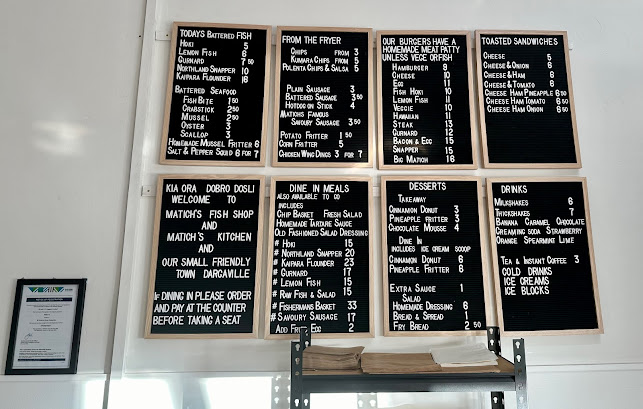 TODAYS BATTERED FISH
HOKI 5
LEMON FISH 6
GURNARD 7 50
NORTHLAND SNAPPER 10
KAIPARA FLOUNDER 16
BATTERED SEAFOOD
FISH BITE 1 50
CRABSTICK 2 50
MUSSEL 2 50
OYSTER 3
SCALLOP 3
HOMEMADE MUSSEL FRITTER 6
SALT & PEPPER SQUID 6 FOR 7
FROM THE FRYER
CHIPS FROM 3
KUMARA CHIPS FROM 5
POLENTA CHIPS & SALSA 5
PLAIN SAUSAGE 3
BATTERED SAUSAGE 3 50
HOTDOG ON STICK 4
MATICHS FAMOUS
SAVOURY SAUSAGE 3 50
POTATO FRITTER 1 50
CORN FRITTER 5
CHICKEN WING DINGS 3 FOR 7
OUR BURGERS HAVE A
HOMEMADE MEAT PATTY
UNLESS VEGE OR FISH
HAMBURGER 9
CHEESE 10
EGG 11
FISH HOKI 10
LEMON FISH 11
VEGGIE 10
HAWAIIAN 11
STEAK 13
GURNARD 12
BACON & EGG 15
SNAPPER 15
BIG MATICH 16
TOASTED SANDWICHES
CHEESE 5
CHEESE & ONION 6
CHEESE & HAM 6
CHEESE & TOMATO 6
CHEESE HAM PINEAPPLE 6 50
CHEESE HAM TOMATO 6 50
CHEESE HAM ONION 6 50
KIA ORA DOBRO DOSLI
WELCOME TO
MATICH'S FISH SHOP
AND
MATICH'S KITCHEN
AND
OUR SMALL FRIENDLY
TOWN DARGAVILLE
# DINING IN PLEASE ORDER
AND PAY AT THE COUNTER
BEFORE TAKING A SEAT
DINE IN MEALS
ALSO AVAILABLE TO GO
INCLUDES
CHIP BASKET FRESH SALAD
HOMEMADE TARTARE SAUCE
OLD FASHIONED SALAD DRESSING
# HOKI 15
# NORTHLAND SNAPPER 20
# KAIPARA FLOUNDER 23
# GURNARD 17
# LEMON FISH 15
# RAW FISH & SALAD 15
# FISHERMANS BASKET 33
# SAVOURY SAUSAGE 17
ADD FRIED EGG 2
DESSERTS
TAKEAWAY
CINNAMON DONUT 3
PINEAPPLE FRITTER 3
CHOCOLATE MOUSSE 4
DINE IN
INCLUDES ICE CREAM SCOOP
CINNAMON DONUT 6
PINEAPPLE FRITTER 6
EXTRA SAUCE 1
SALAD
HOMEMADE DRESSING 6
BREAD & SPREAD 1
FRY BREAD 2 50
DRINKS
MILKSHAKES 6
THICKSHAKES 7
BANANA CARAMEL CHOCOLATE
CREAMING SODA STRAWBERRY
ORANGE SPEARMINT LIME
TEA & INSTANT COFFEE 3
COLD DRINKS
ICE CREAMS
ICE BLOCKS